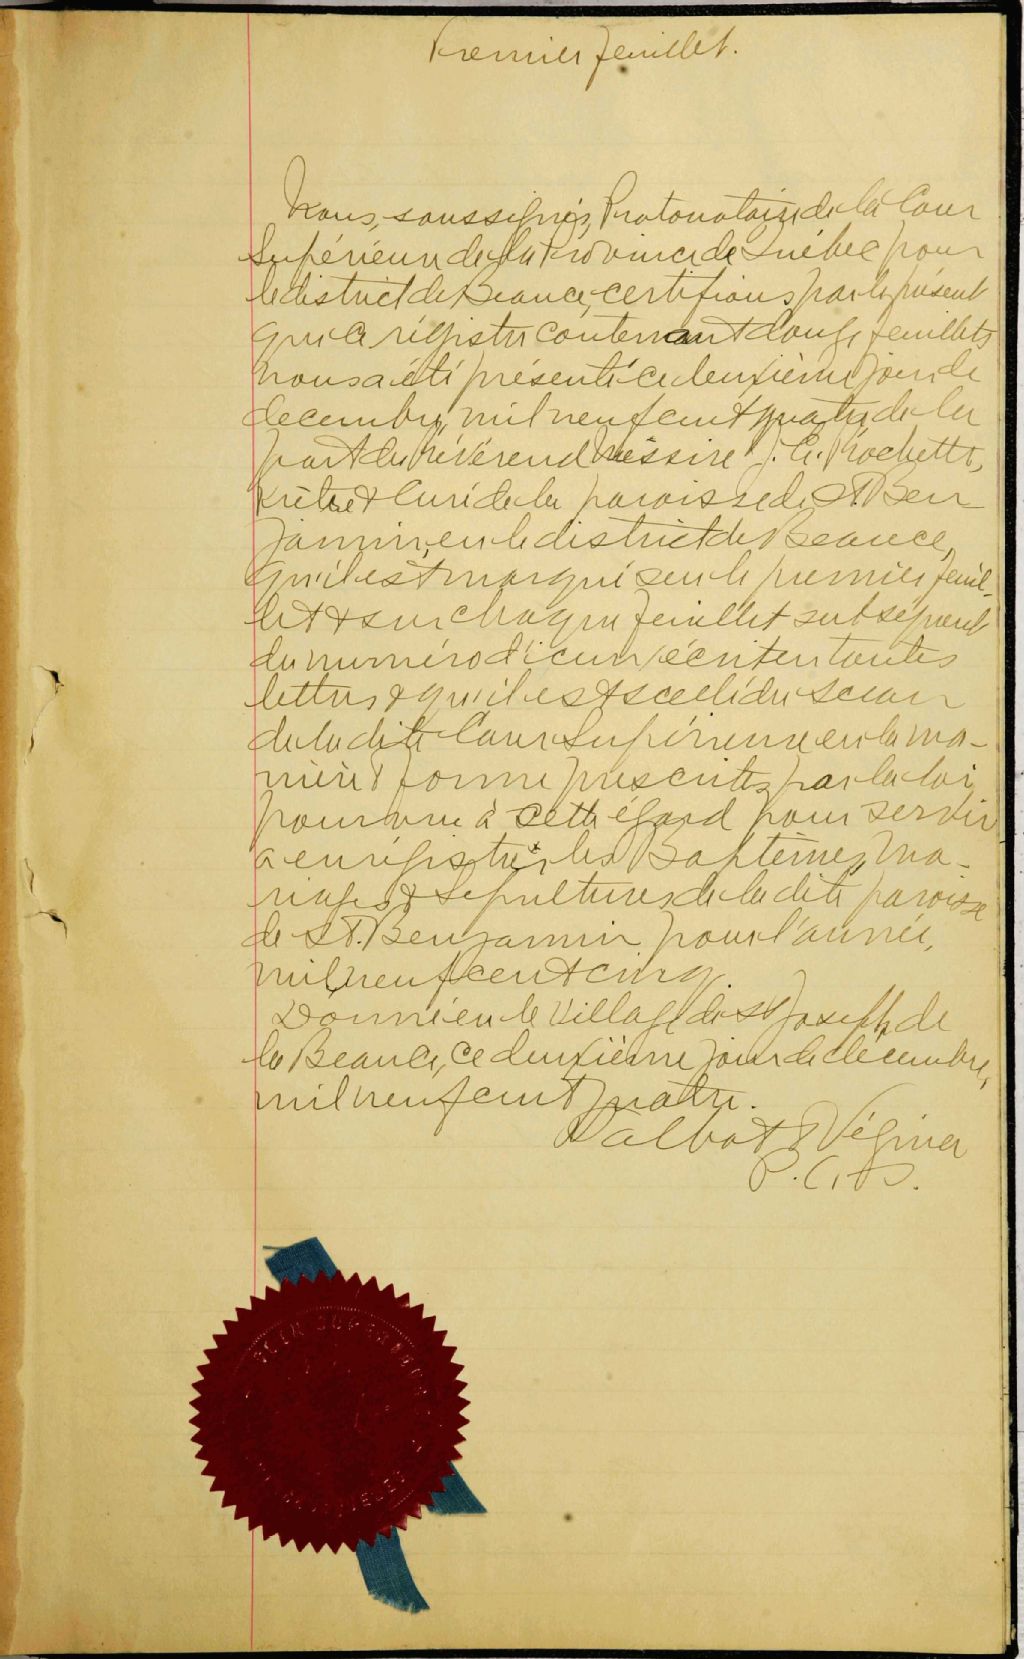 Premier feuillet.
Nous, soussignés, Protonotaire de la Cour
Supérieure de la Province de Québec pour
le district de Beauce, certifions par le présent
que ce régistre contenant douze feuillets
nous a été présenté ce deuxième jour de
decembre, mil neuf cent quatre de la
part du révérend Messire J. E. Rochette,
Prêtre & Curé de la paroisse de St. Ben
jamin, en le district de Beauce,
qu'il est marqué sur le premier feuil-
let & sur chaque feuillet subséquent
du numéro d'iceux écrit en toutes
lettres & qu'il est scellé du sceau
de la dite Cour Supérieure en la ma-
nière & forme prescrites par la loi
pourvue à cette égard pour servir
a enrégistrer les Baptêmes, Ma-
riages & Sépultures de la dite paroisse
de St. Benjamin pour l'année,
mil neuf cent cinq.
Donné en le village de St Joseph de
la Beauce, ce deuxième jour de décembre,
mil neuf cent quatre.
Talbot & Vézina
P. C. S.